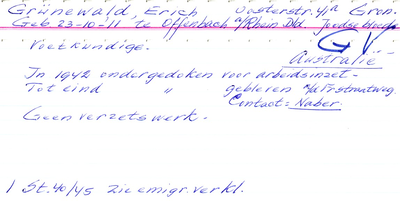 Grünewald, Erich Oosterstr. 4/a Gron.
Geb. 23-10-11 te Offenbach a/Rhein Dld. Joodse bloede
Voetkundige. GV
Australië
In 1942 ondergedoken voor arbeidsinzet -
Tot eind " gebleven straatweg.
Contact = Naber.
Geen verzetswerk.
1 St. 40/45 Zie emigr. verkl.